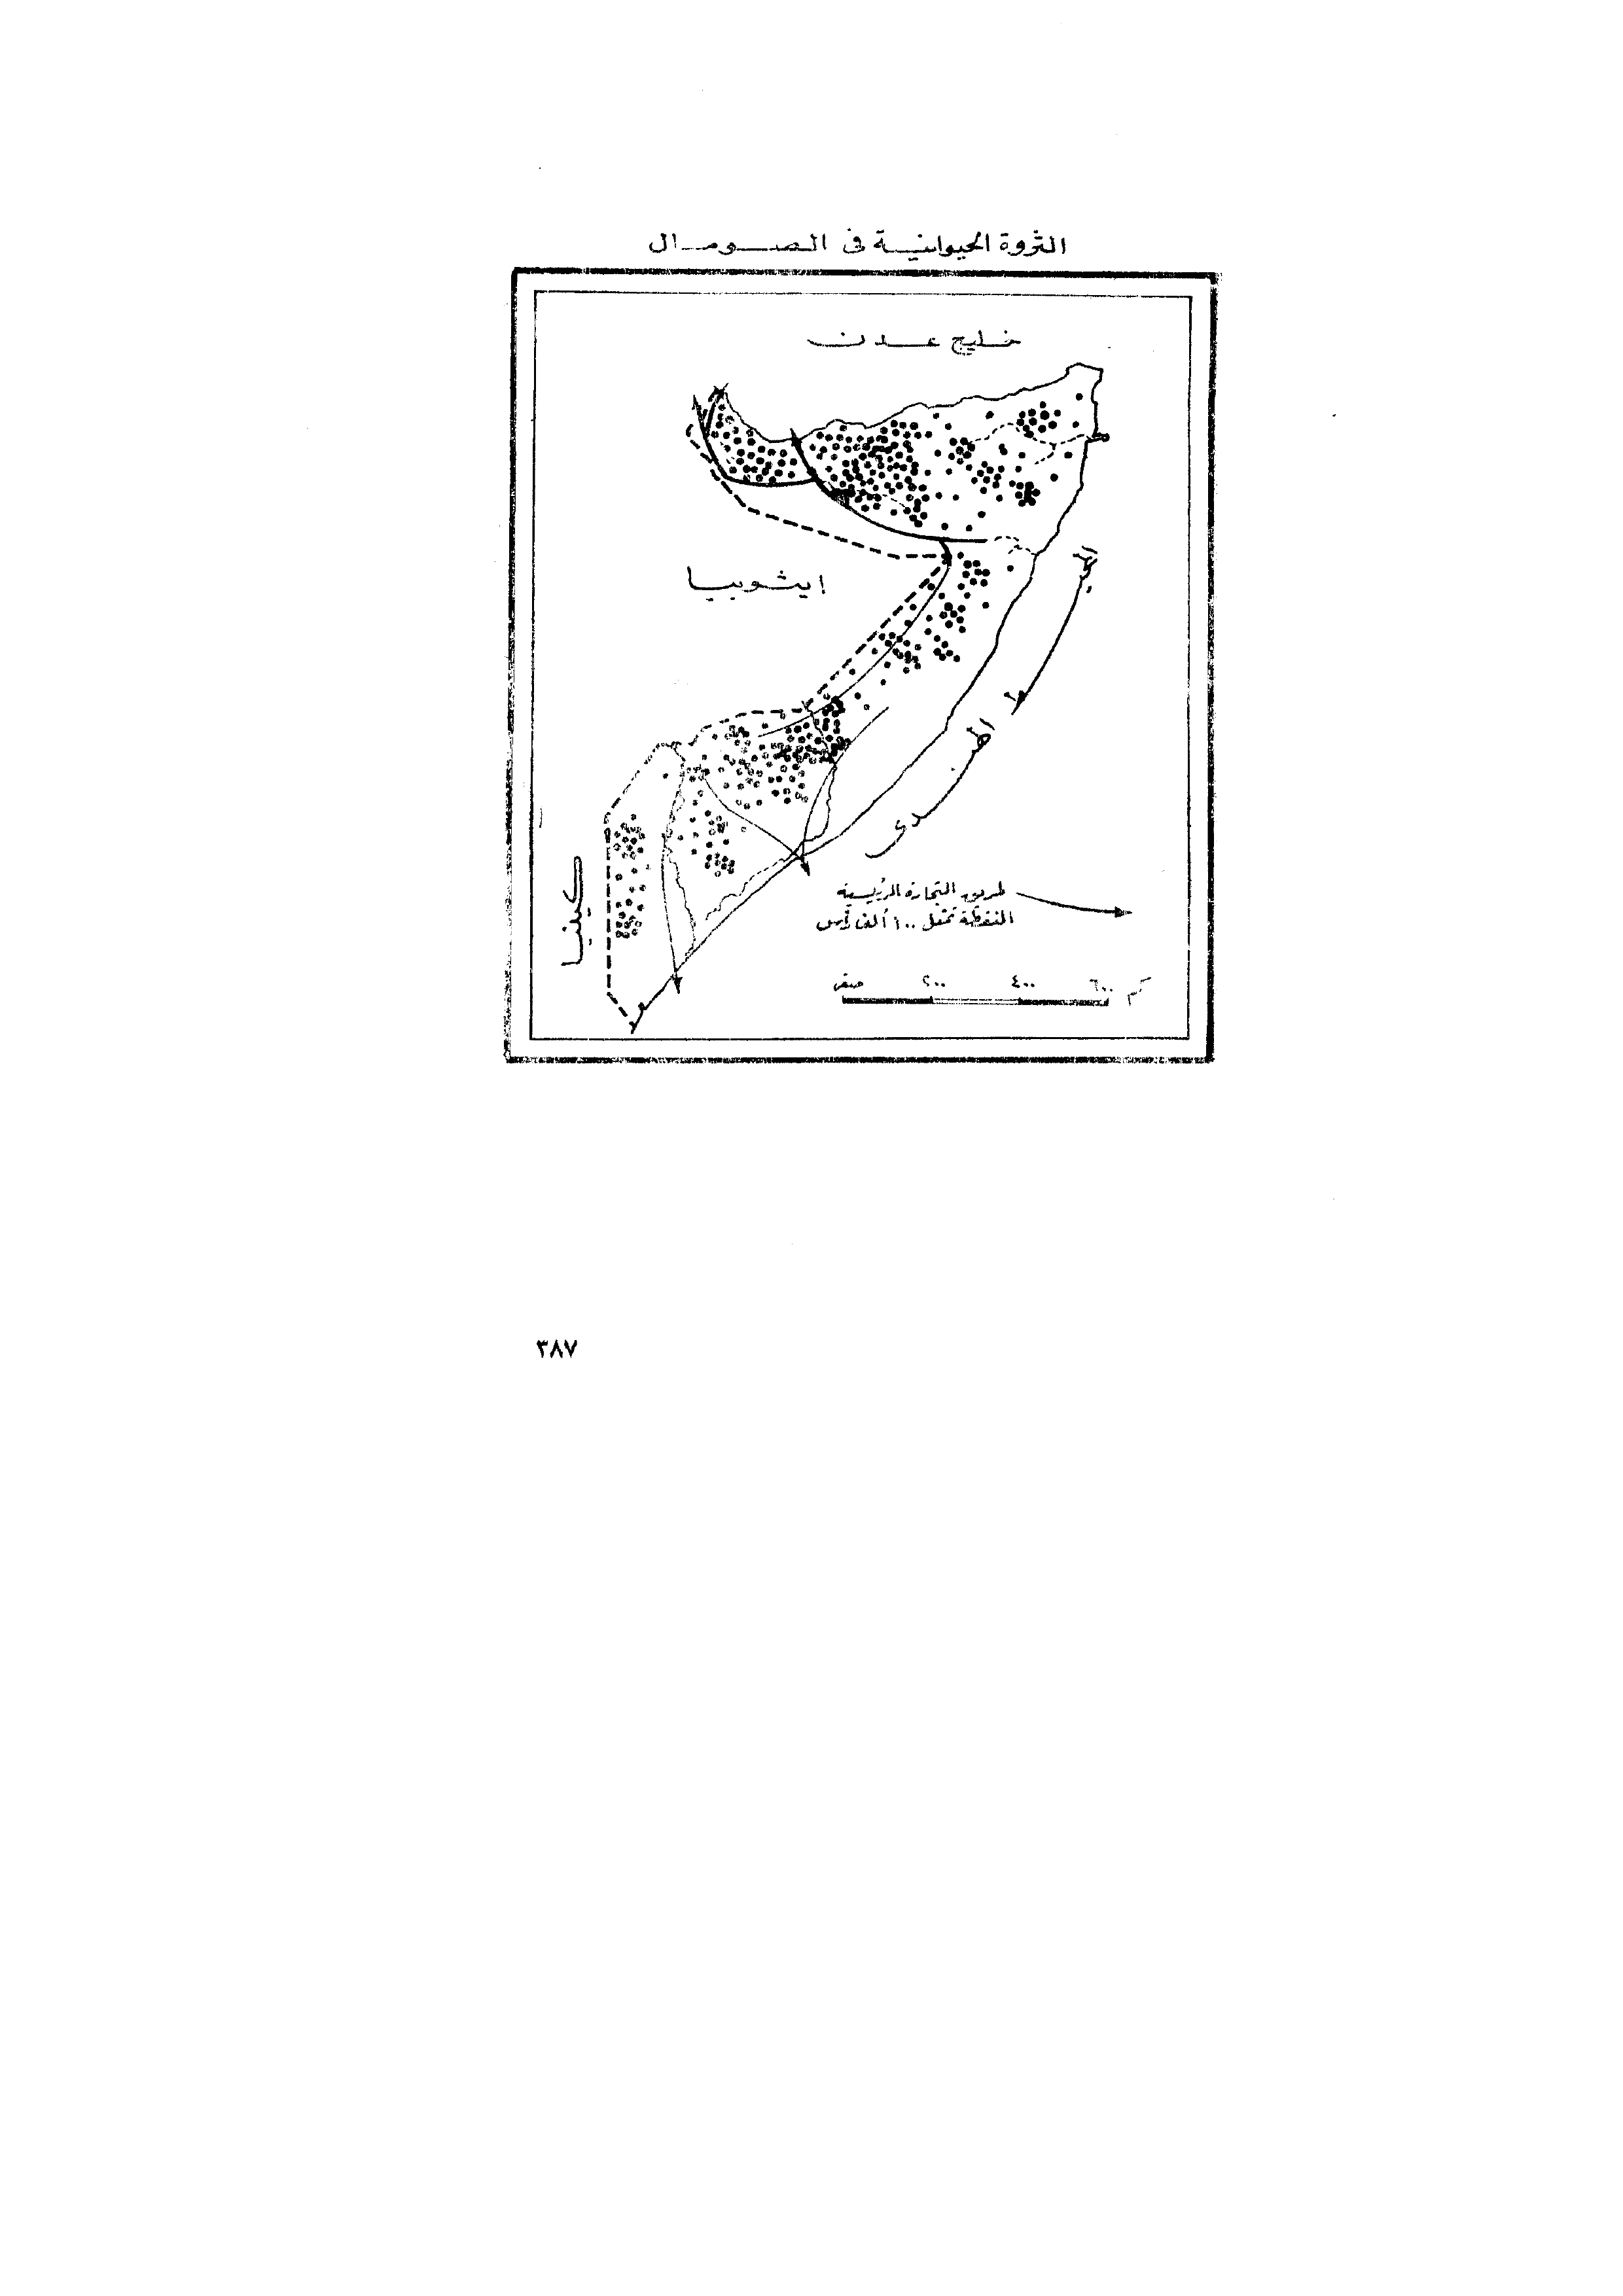 الثروة الحيوانية فى الصومال
خليج عدن
ايثوبيا
المحيط الهندى
كينيا
طريق التجارة الرئيسية
النقطة تمثل ١٠٠ ألف رأس
صفر ٢٠٠ ٤٠٠ ٦٠٠ كم
٣٨٧